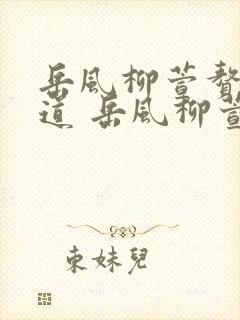 岳風柳萱贅
道 岳風柳萱
束妹兒